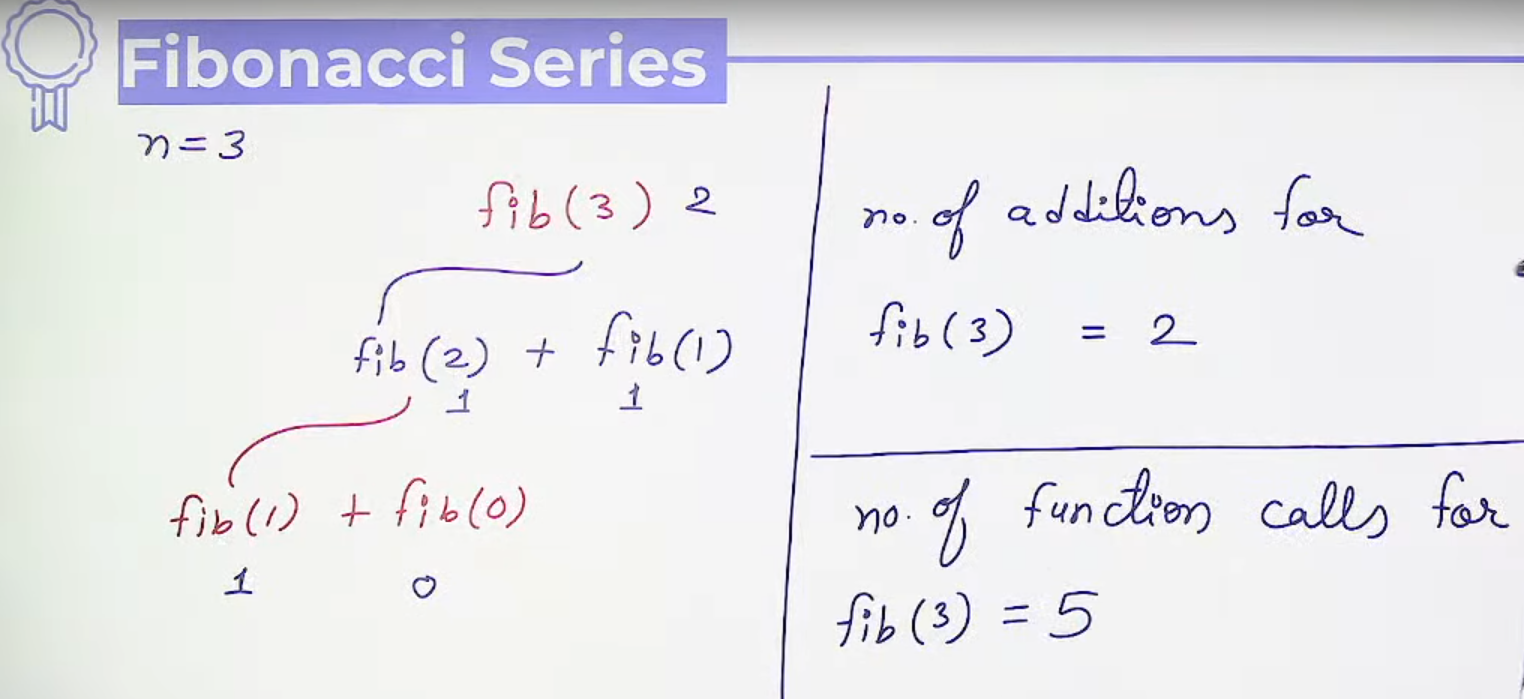 Fibonacci Series
n = 3
fib(3) 2
fib(2) + fib(1)
1 1
fib(1) + fib(0)
1 0
no. of additions for
fib(3) = 2
no. of function calls for
fib(3) = 5